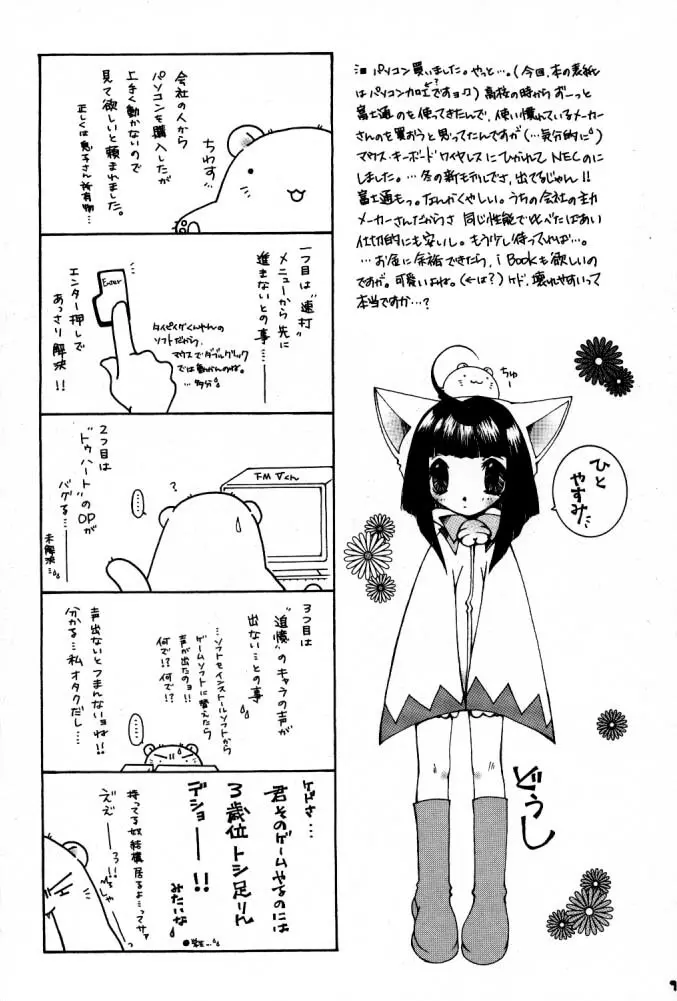 パソコン買いました。やっと…。(今回、本の表紙
はパソコン加工ですョ♪)高校の時からずーっと
富士通のを使ってきたんで、使い慣れているメーカー
さんのを買おうと思ってたんですが(…気分的に)
マウス・キーボードワイヤレスにひかれてNECのに
しました。…冬の新モデルでさ、出てるじゃん!!
富士通もっ。なんかくやしい。うちの会社の主力
メーカーさんだからさ 同じ性能で比べたばあい
仕切的にも安いし。もう少し待ってれば…。
…お金に余裕できたら、i Bookも欲しいの
ですが。可愛いよね。(←は?)ケド、壊れやすいって
本当ですか…?
会社の人から
パソコンを購入したが
上手く動かないので
見て欲しいと頼まれました。
正しくは息子さん所有物…
ちわす
1つ目は"連打"
メニューから先に
進まないとの事…
タイピングくんやんの
ソフトだから、
マウスでダブルクリック
では動かんのね。
…多分
Enter
エンター押しで
あっさり解決!!
2つ目は
"トゥハート"のOPが
バグる…
未解決…
?
……
FMVくん
3つ目は
"追憶"のキャラの声が
出ない…との事
…ソフトをインストールソフトから
ゲームソフトに替えたら
声が出たのョ!!
何で!?何で!?
声出ないとつまんないョね!!
分かる…私オタクだし…
……
ケドさ…
君そのゲームやるのには
3歳位トシ足りん
デショ――!!
みたいな
持ってる奴結構居るよ…ってサァ
ええ――ろ!!
ちゅー
ひと
やすみ
どうし
9